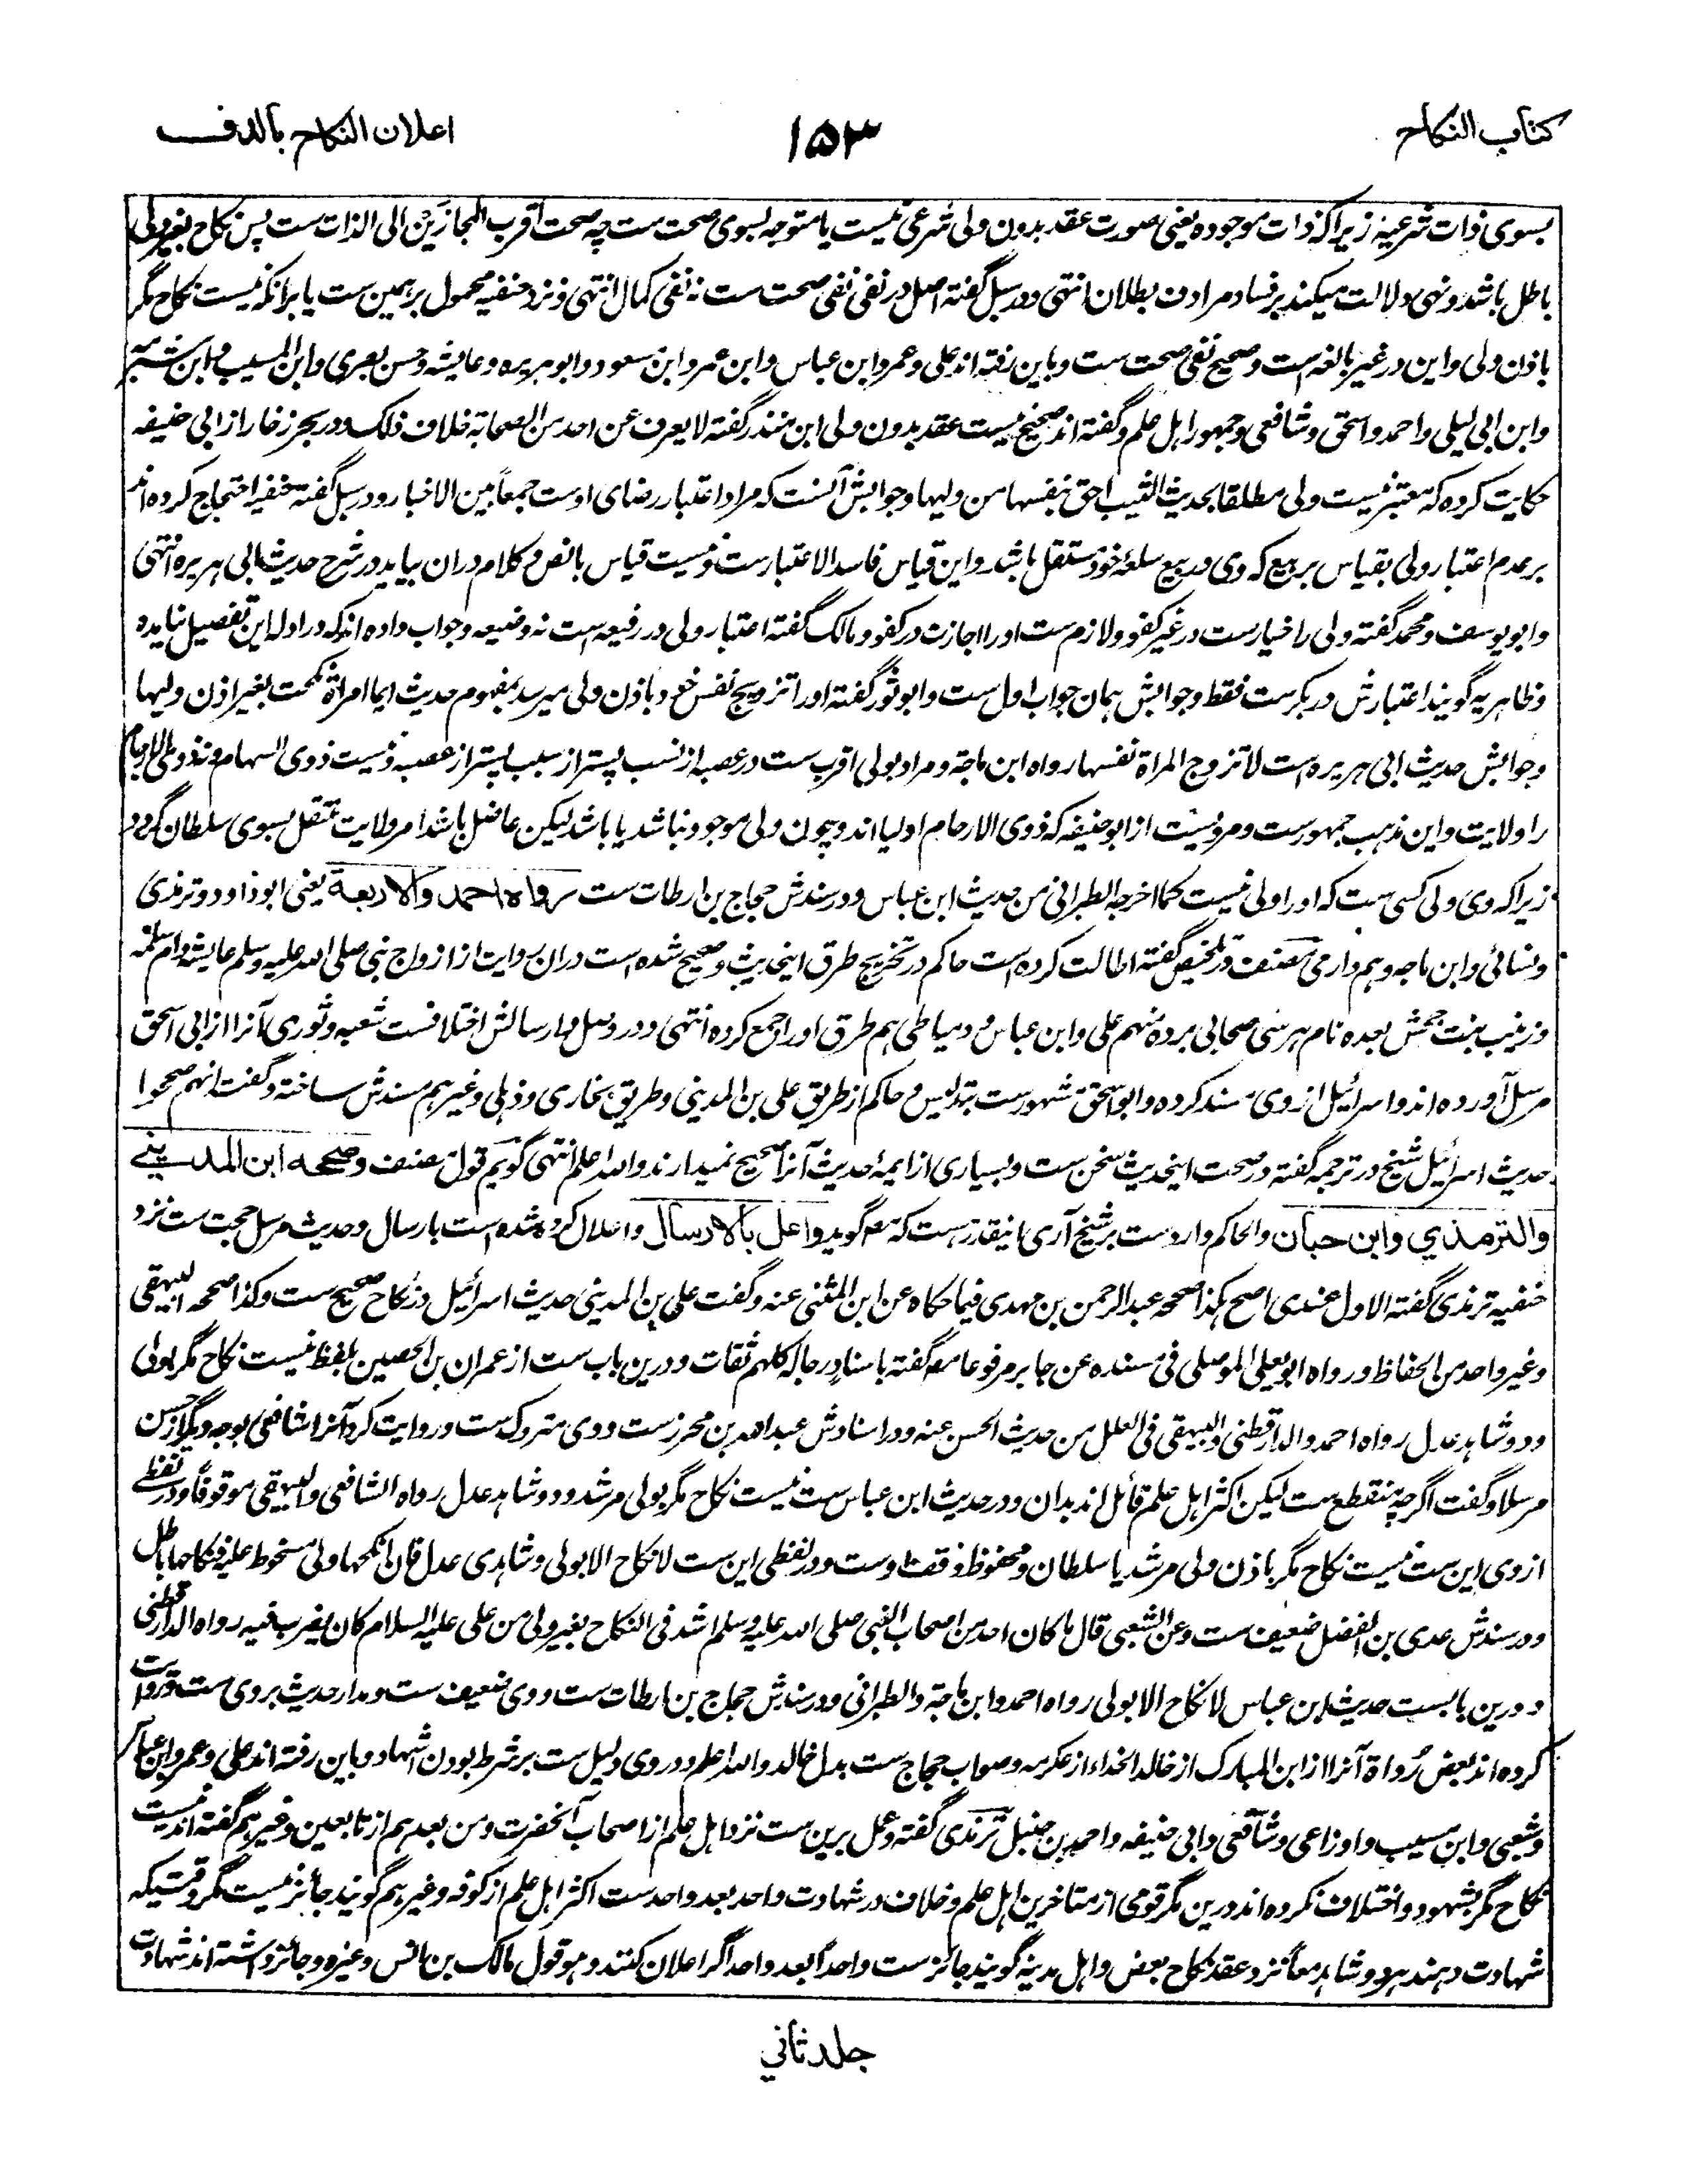 كتاب النكاح
۱۵۳
اعلان النكاح بالدف
بسوی ذات شرعیه زیراکه ذات موجوده یعنی صورت عقد بدون ولی شرعی نیست یا متوجه بسوی صحت ست چه صحت اقرب المجازین الی الذات ست پس نکاح بغیر ولی
باطل باشد و نهی دلالت میکند بر فساد مرادف بطلان انتهی و در سبل گفته اصل در نفی نفی صحت ست نه نفی کمال انتهی و نزد حنفیه محمول بر همین ست یا برانکه نیست نکاح مگر
باذن ولی و این در غیر بالغه است و صحیح نفی صحت ست و باین رفته اند علی و عمر و ابن عباس و ابن عمر و ابن مسعود و ابو هریره و عایشه و حسن بصری و ابن المسیب و ابن شبرمه
و ابن ابی لیلی و احمد و اسحق و شافعی و جمهور اهل علم و گفته اند صحیح نیست عقد بدون ولی ابن منذر گفته لا یعرف عن احد من الصحابة خلاف ذلک و در بحر زخار از ابی حنیفه
حکایت کرده که معتبر نیست ولی مطلقا بحدیث الثیب احق بنفسها من ولیها و جوابش آنست که مراد اعتبار رضای اوست جمعاً بین الاخبار و در سبل گفته حنفیه احتجاج کرده اند
بر عدم اعتبار ولی بقیاس بر بیع که وی در بیع سلعهٔ خود مستقل باشد و این قیاس فاسد الاعتبار ست و نیست قیاس بالنص و کلام دران بیاید در شرح حدیث ابی هریره انتهی
و ابو یوسف و محمد گفته ولی را خیار ست در غیر کفو و لازم ست او را اجازت در کفو و مالک گفته اعتبار ولی در رفیعه است نه وضیعه و جواب داده اند که در ادله این تفصیل نیامده
و ظاهریه گویند اعتبارش در بکر ست فقط و جوابش همان جواب اول ست و ابو ثور گفته او را تزویج نفس خود باذن ولی میرسد بمفهوم حدیث ایما امرأة نکحت بغیر اذن ولیها
و جوابش حدیث ابی هریره است لا تزوج المراة نفسها رواه ابن ماجة و مراد بولی اقرب ست در عصبه از نسب پستر از سبب پستر از عصبه و نیست ذوی السهام و نه ذوی الارحام
را ولایت و این مذهب جمهور ست و مرویست از ابو حنیفه که ذوی الارحام اولیا اند و چون ولی موجود نباشد یا باشد لیکن عاضل باشد امر ولایت منتقل بسوی سلطان گردد
زیراکه وی ولی کسی ست که او را ولی نیست کما اخرجه الطبرانی من حدیث ابن عباس و در سندش حجاج بن ارطات ست رواه احمد والاربعة یعنی ابوداود و ترمذی
و نسائی و ابن ماجه و هم دارمی مصنف در تلخیص گفته اطالت کرده است حاکم در تخریج طرق اینحدیث و صحیح شده است دران روایت از ازواج نبی صلی الله علیه و سلم عایشه و ام سلمه
و زینب بنت جحش بعده نام هر سی صحابی برده منهم علی و ابن عباس و دمیاطی هم طرق او را جمع کرده انتهی و در وصل و ارسالش اختلافست شعبه و ثوری آنرا از ابی اسحق
مرسل آورده اند و اسرائیل از وی مسند کرده و ابو اسحق مشهور ست بتدلیس و حاکم از طریق علی بن المدینی و طریق بخاری و ذهلی و غیرهم مسندش ساخته و گفت انهم صححوا
حدیث اسرائیل شیخ در ترجمه گفته در صحت اینحدیث سخن ست و بسیاری از ایمهٔ حدیث آنرا صحیح نمیدارند والله اعلم انتهی گویم قول مصنف وصححه ابن المدینے
والترمذي وابن حبان والحاکم وارد ست بر شیخ آری اینقدر هست که هم گوید واعل بالارسال و اعلال کرده شده است بارسال و حدیث مرسل حجت ست نزد
حنفیه ترمذی گفته الاول عندی اصح هکذا صححه عبدالرحمن بن مهدی فیما حکاه عن ابن المثنی عنه و گفت علی بن المدینی حدیث اسرائیل در نکاح صحیح ست و کذا صححه البیهقی
وغیر واحد من الحفاظ ورواه ابو یعلی الموصلی فی مسنده عن جابر مرفوعا هم گفته باسناد رجاله کلهم ثقات و درین باب ست از عمران بن الحصین بلفظ نیست نکاح مگر بولی
و دو شاهد عدل رواه احمد والدارقطنی والبیهقی فی العلل من حدیث الحسن عنه و در اسنادش عبدالله بن محرز ست و وی متروک ست و روایت کرد آنرا شافعی بوجه دیگر از حسن
مرسلا و گفت اگرچه منقطع ست لیکن اکثر اهل علم قائل اند بدان و در حدیث ابن عباس ست نیست نکاح مگر بولی مرشد و دو شاهد عدل رواه الشافعی والبیهقی موقوفاً و در لفظے
از وی این ست نیست نکاح مگر باذن ولی مرشد یا سلطان و محفوظ وقف اوست و در لفظی این ست لا نکاح الا بولی و شاهدی عدل فان انکحها ولی مسخوط علیه فنکاحها باطل
و در سندش عدی بن الفضل ضعیف ست و عن الشعبی قال ما کان احد من اصحاب النبی صلی الله علیه وسلم اشد فی النکاح بغیر ولی من علی علیه السلام کان یضرب فیه رواه الدارقطنی
و درین بابست حدیث ابن عباس لا نکاح الا بولی رواه احمد وابن ماجة والطبرانی و در سندش حجاج بن ارطات ست و وی ضعیف ست و مدار حدیث بر وی ست و روایت
کرده اند بعض رواة آنرا از ابن المبارک از خالد الحذاء از عکرمه و صواب حجاج ست بدل خالد والله اعلم و در وی دلیل ست بر شرط بودن اشهاد و باین رفته اند علی و عمر و ابن عباس
و شعبی و ابن مسیب و اوزاعی و شافعی و ابی حنیفه و احمد بن حنبل ترمذی گفته و عمل برین ست نزد اهل علم از اصحاب آنحضرت و من بعدهم از تابعین و غیرهم گفته اند نیست
نکاح مگر بشهود و اختلاف نکرده اند درین مگر قومی از متاخرین اهل علم و خلاف در شهادت واحد بعد واحد ست اکثر اهل علم از کوفه و غیرهم گویند جائز نیست مگر وقتیکه
شهادت دهند هر دو شاهد معاً نزد عقد نکاح بعض و اهل مدینه گویند جائز ست واحداً بعد واحد اگر اعلان کنند و هو قول مالک بن انس وغیره و جائز داشته اند شهادت
جلد ثاني